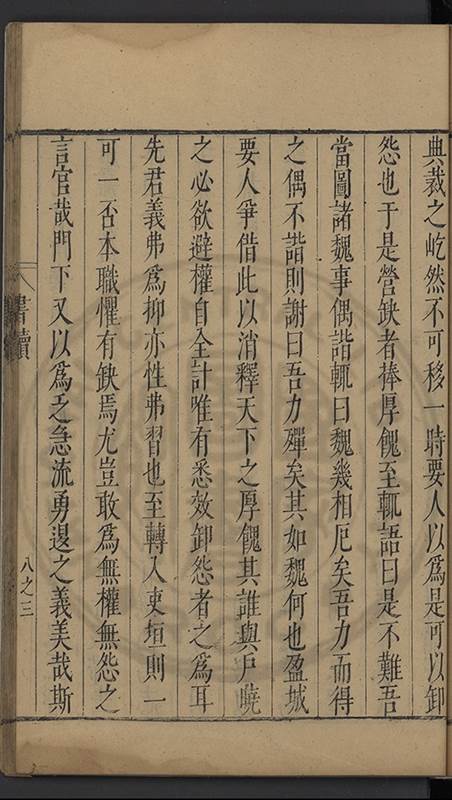 典裁之屹然不可移一時要人以為是可以卸
怨也于是營缺者捧厚餽至輒語曰是不難吾
當圖諸魏事偶諧輒曰魏幾相厄矣吾力而得
之偶不諧則謝曰吾力殫矣其如魏何也盈城
要人爭借此以消釋天下之厚餽其誰與戸曉
之必欲避權自全計唯有悉效卸怨者之為耳
先君義弗為抑亦性弗習也至轉入吏垣則一
可一否本職懼有缺焉尤豈敢為無權無怨之
言官哉門下又以為乏急流勇退之義美哉斯
書牘
八之三